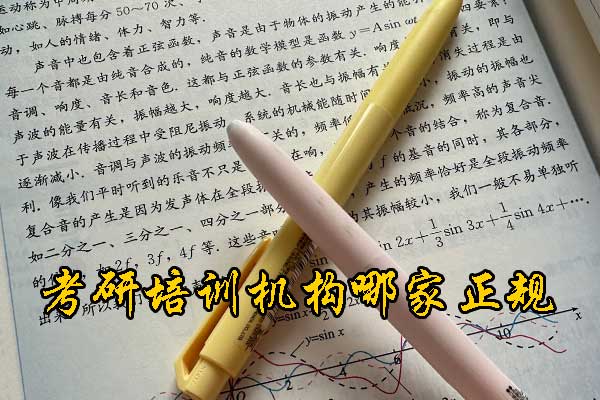 动称为
如心跳、脉搏每分 50~70 次、
动，如人的情绪、体力、智力等.
声音中也包含着正弦函数. 声音是由于物体的振动产生的能
每一个音都是由纯音合成的，纯音的数学模型是函数 y=A sin ωt.
音调、响度、音长和音色. 这都与正弦函数的参数有关. 响度
声波的能量有关，振幅越大，响度越大. 音长也与振幅有
于声波在传播过程中受阻尼振动 系统的机械能随时间
逐渐减小. 音调与声波的振动频率 关的，频率低 低沉，频率高的声音尖
利. 像我们平时听到的乐音不只是 在响， 个音的结合，称为复合音.
复合音的产生是因为发声体在全段振 f 的基音的同时，其各部分，
如二分之一、三分之一、四分之一部分 产生的频率恰好是全段振动频率
的倍 2f，3f，4f 等. 这些音 其振幅较小，我们一般不易单独听
出来 所以我 sin 2x+1/3 sin 3x+1/4 sin 4x+….
考研培训机构哪家正规
y=sin x
y=sin x
x
2
6
10